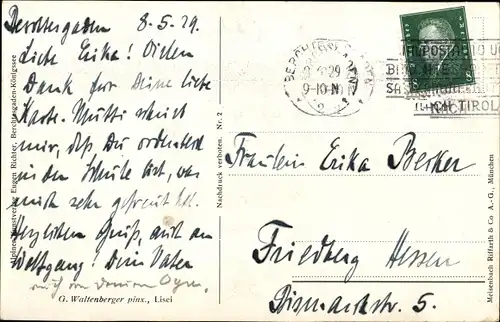 Berchtesgaden 8-5.29.
Liebe Erika! Vielen
Dank für Deine liebe
Karte. Mutti schrieb
mir, daß Du ordentlich
in der Schule bist, was
mich sehr gefreut hat.
Herzlichen Gruß, auch an
Wolfgang! Dein Vater
auch von
G. Waltenberger pinx., Lisei
Eugen Richter, Berchtesgaden-Königssee
Nachdruck verboten. Nr. 2
Fräulein Erika Becker
Friedberg Hessen
Bismarckstr. 5.
Meisenbach Riffarth & Co. A.-G., München
9-10-N
TIROL